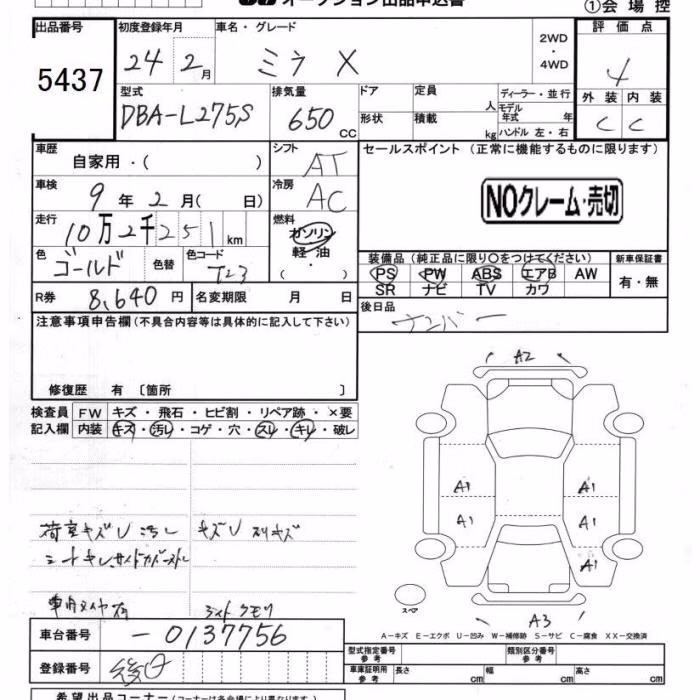 オークション出品申込書
①会場控
出品番号 初度登録年月 車名・グレード 評価点
5437 24 2月 ミラ X 2WD・4WD 4
型式 排気量 ドア 定員 人 ディーラー・並行 外装 内装
DBA-L275S 650 CC 形状 積載 kg モデル年式 年 ハンドル 左・右 C C
車歴 自家用・( ) シフト AT セールスポイント(正常に機能するものに限ります)
車検 9年2月( 日) 冷房 AC NOクレーム・売切
走行 10万2千251km 燃料 ガソリン 軽油 ( ・ )
色 ゴールド 色替 色コード T23 装備品(純正品に限り○をつけてください) 新車保証書
PS PW ABS エアB AW 有・無
SR ナビ TV カワ
R券 8,640円 名変期限 月 日 後日品
ナンバー
注意事項申告欄(不具合内容等は具体的に記入して下さい)
修復歴 有〔箇所 〕
検査員 FW キズ・飛石・ヒビ割・リペア跡・×要
記入欄 内装 キズ・汚レ・コゲ・穴・スレ・キレ・破レ
A2
A1 A1
A1 A1
A1
荷室キズU汚レ キズU
スペア
ライトクモリ
A3
A-キズ E-エクボ U-凹み W-補修跡 S-サビ C-腐食 XX-交換済
車台番号 -0137756
型式指定番号 参考 類別区分番号 参考
登録番号 後日
車庫証明用 参考 長さ cm 幅 cm 高さ cm
希望出品コーナー(コーナーは各会場により異なります)